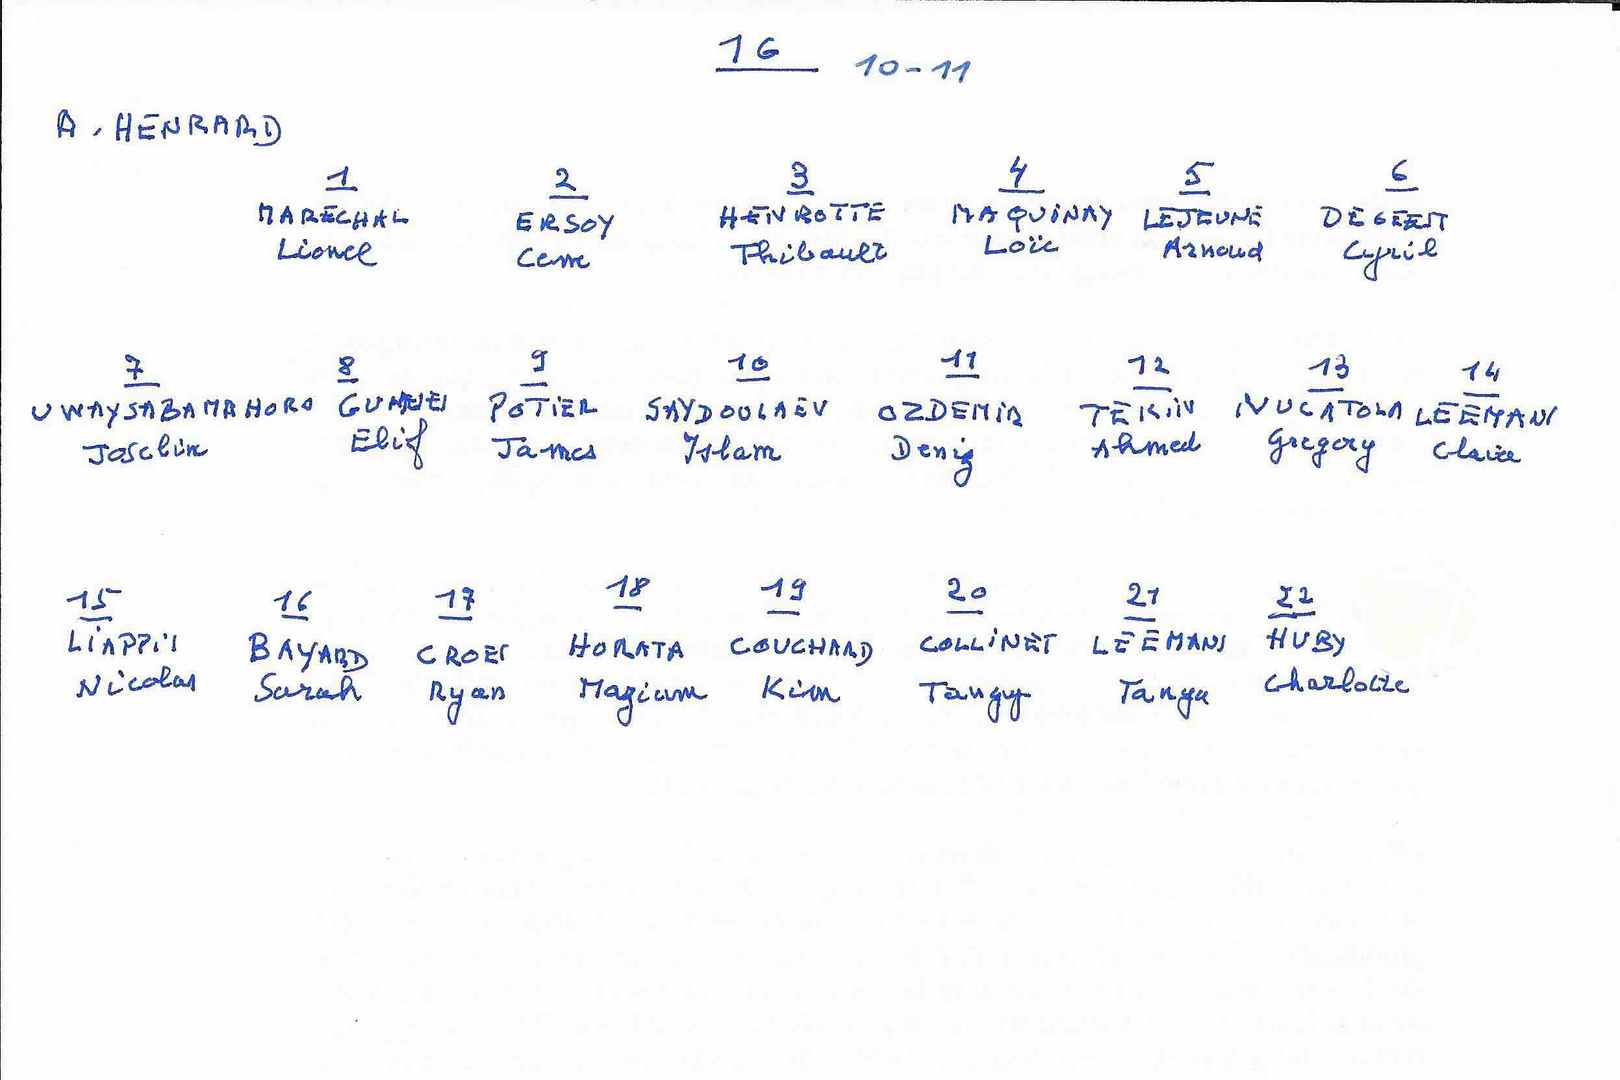 16 10-11
A. HENRARD
1 2 3 4 5 6
MARECHAL ERSOY HENROTTE MAQUINAY LEJEUNE DEGEEST
Lionel Cem Thibault Loïc Arnaud Cyril
7 8 9 10 11 12 13 14
UWAYSABAMAHORO POTIER SAYDOULAEV OZDEMIR TEKIN LEEMANS
Joselin Elif James Islam Deniz Ahmed Gregory Claire
15 16 17 18 19 20 21 22
LIAPPIS BAYARD CROES HORATA COUCHARD COLLINET LEEMANS HUBY
Nicolas Sarah Ryan Kim Tanguy Tanya Charlotte